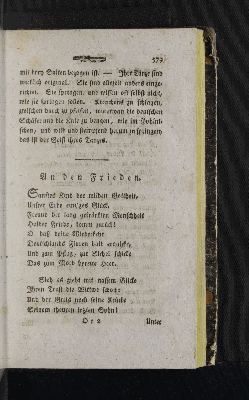 579
mit drey Saiten bezogen ist. — Ihre Tänze sind
wirklich original. Sie sind allezeit anders einge-
richtet. Sie springen, und wissen oft selbst nicht,
wie sie springen sollen. Kreuzhans zu schlagen,
zwischen durch zu pfeifen, wie etwan die deutschen
Schäfer und die Knie zu beugen, wie im Kosaki-
schen, und wild und stampfend herum zu springen,
das ist der Geist ihres Tanzes.
An den Frieden.
Sanftes Kind der milden Gottheit,
Unsrer Erde einz'ges Glück,
Freund der lang gekränkten Menschheit
Holder Friede, komm zurück!
O daß deine Wiederkehr
Deutschlands Fluren bald erquickte,
Und zum Pflug, zur Sichel schickte
Das zum Mord bereite Heer.
Sieh es zieht mit nassem Blicke
Ihren Trost die Wittwe fort:
Und der Greis nach seine Krücke
Seinem theuern letzten Sohn!
O o 2
Unter